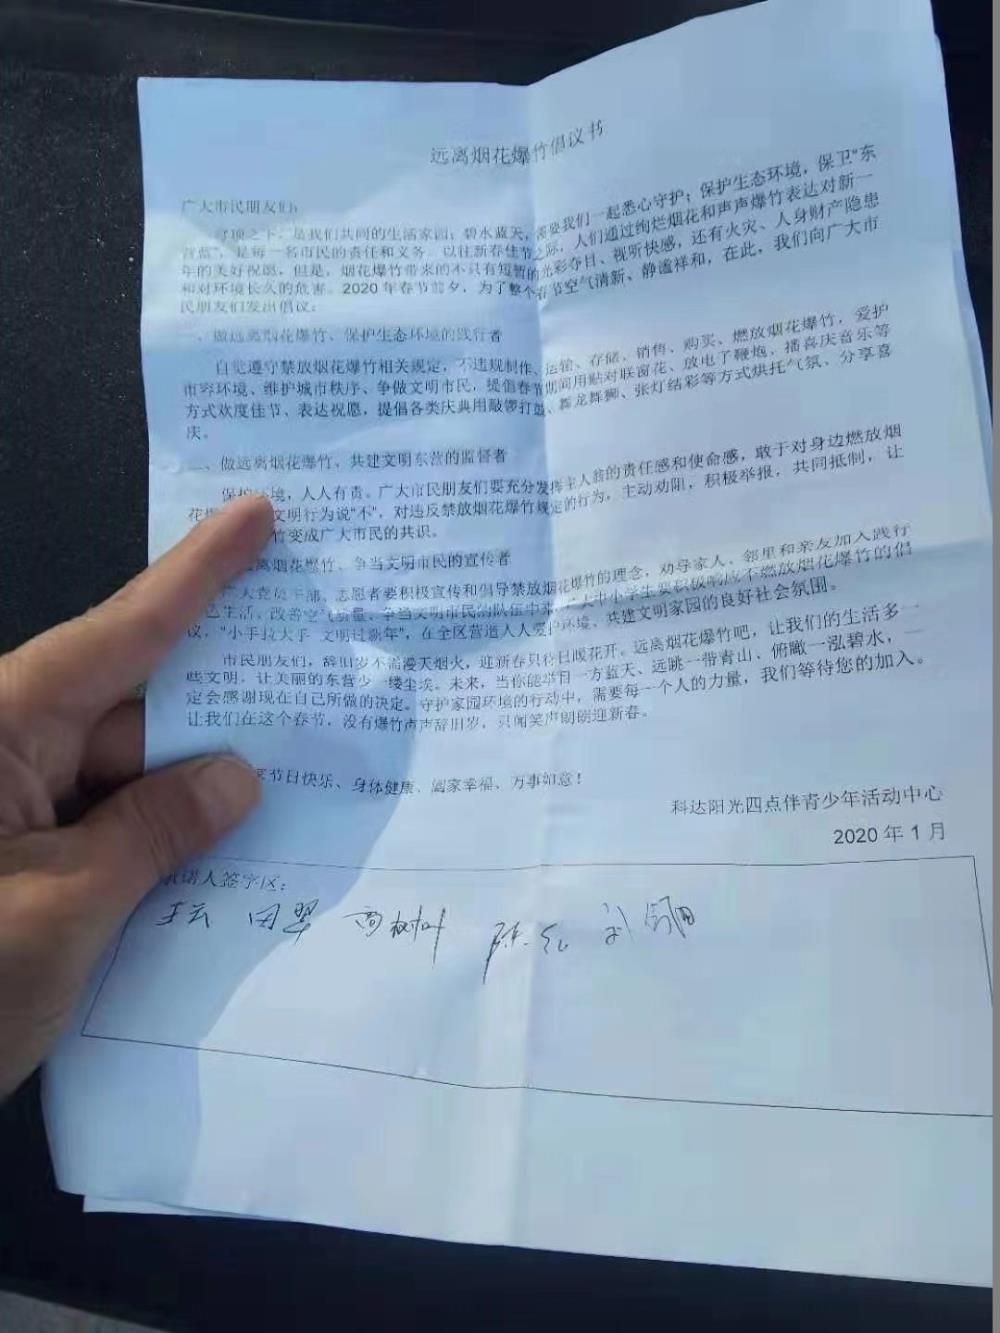 远离烟花爆竹倡议书
广大市民朋友们:
穹顶之下,是我们共同的生活家园;碧水蓝天,需要我们一起悉心守护;保护生态环境,保卫“东
营蓝”,是每一名市民的责任和义务。以往新春佳节之际,人们通过绚烂烟花和声声爆竹表达对新一
年的美好祝愿,但是,烟花爆竹带来的不只有短暂的光彩夺目、视听快感,还有火灾、人身财产隐患
和对环境长久的危害。2020年春节前夕,为了整个春节空气清新、静谧祥和,在此,我们向广大市
民朋友们发出倡议:
一、做远离烟花爆竹、保护生态环境的践行者
自觉遵守禁放烟花爆竹相关规定,不违规制作、运输、存储、销售、购买、燃放烟花爆竹,爱护
市容环境、维护城市秩序、争做文明市民,提倡春节期间用贴对联窗花、放电子鞭炮、播喜庆音乐等
方式欢度佳节、表达祝愿,提倡各类庆典用敲锣打鼓、舞龙舞狮、张灯结彩等方式烘托气氛、分享喜
庆。
二、做远离烟花爆竹、共建文明东营的监督者
保护环境,人人有责。广大市民朋友们要充分发挥主人翁的责任感和使命感,敢于对身边燃放烟
花 文明行为说“不”,对违反禁放烟花爆竹规定的行为,主动劝阻,积极举报,共同抵制,让
竹变成广大市民的共识。
离烟花爆竹、争当文明市民的宣传者
广大党员干部、志愿者要积极宣传和倡导禁放烟花爆竹的理念,劝导家人、邻里和亲友加入践行
色生活、改善空气质量、争当文明市民的队伍中来,广大中小学生要积极响应不燃放烟花爆竹的倡
议,“小手拉大手 文明过新年”,在全区营造人人爱护环境、共建文明家园的良好社会氛围。
市民朋友们,辞旧岁不需漫天烟火,迎新春只待日暖花开。远离烟花爆竹吧,让我们的生活多一
些文明,让美丽的东营少一缕尘埃。未来,当你能举目一方蓝天、远眺一带青山、俯瞰一泓碧水,一
定会感谢现在自己所做的决定。守护家园环境的行动中,需要每一个人的力量,我们等待您的加入。
让我们在这个春节,没有爆竹声声辞旧岁,只闻笑声朗朗迎新春。
家节日快乐、身体健康、阖家幸福、万事如意!
科达阳光四点伴青少年活动中心
2020年1月
承诺人签字区:
王云 田翠 高树叶 陈红